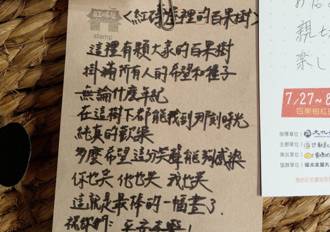 <紅磚屋裡的百果樹>
stamp
這裡有顆大大的百果樹
掛滿所有人的希望和種子
無論什麼年紀
在這樹下都能找到那刻時光
純真的歡樂
多麼希望這份笑聲能夠感染
你也笑 他也笑 我也笑
這就是最棒的一幅畫了
祝你們：
親切
楽し
7/27~8
百果樹紅